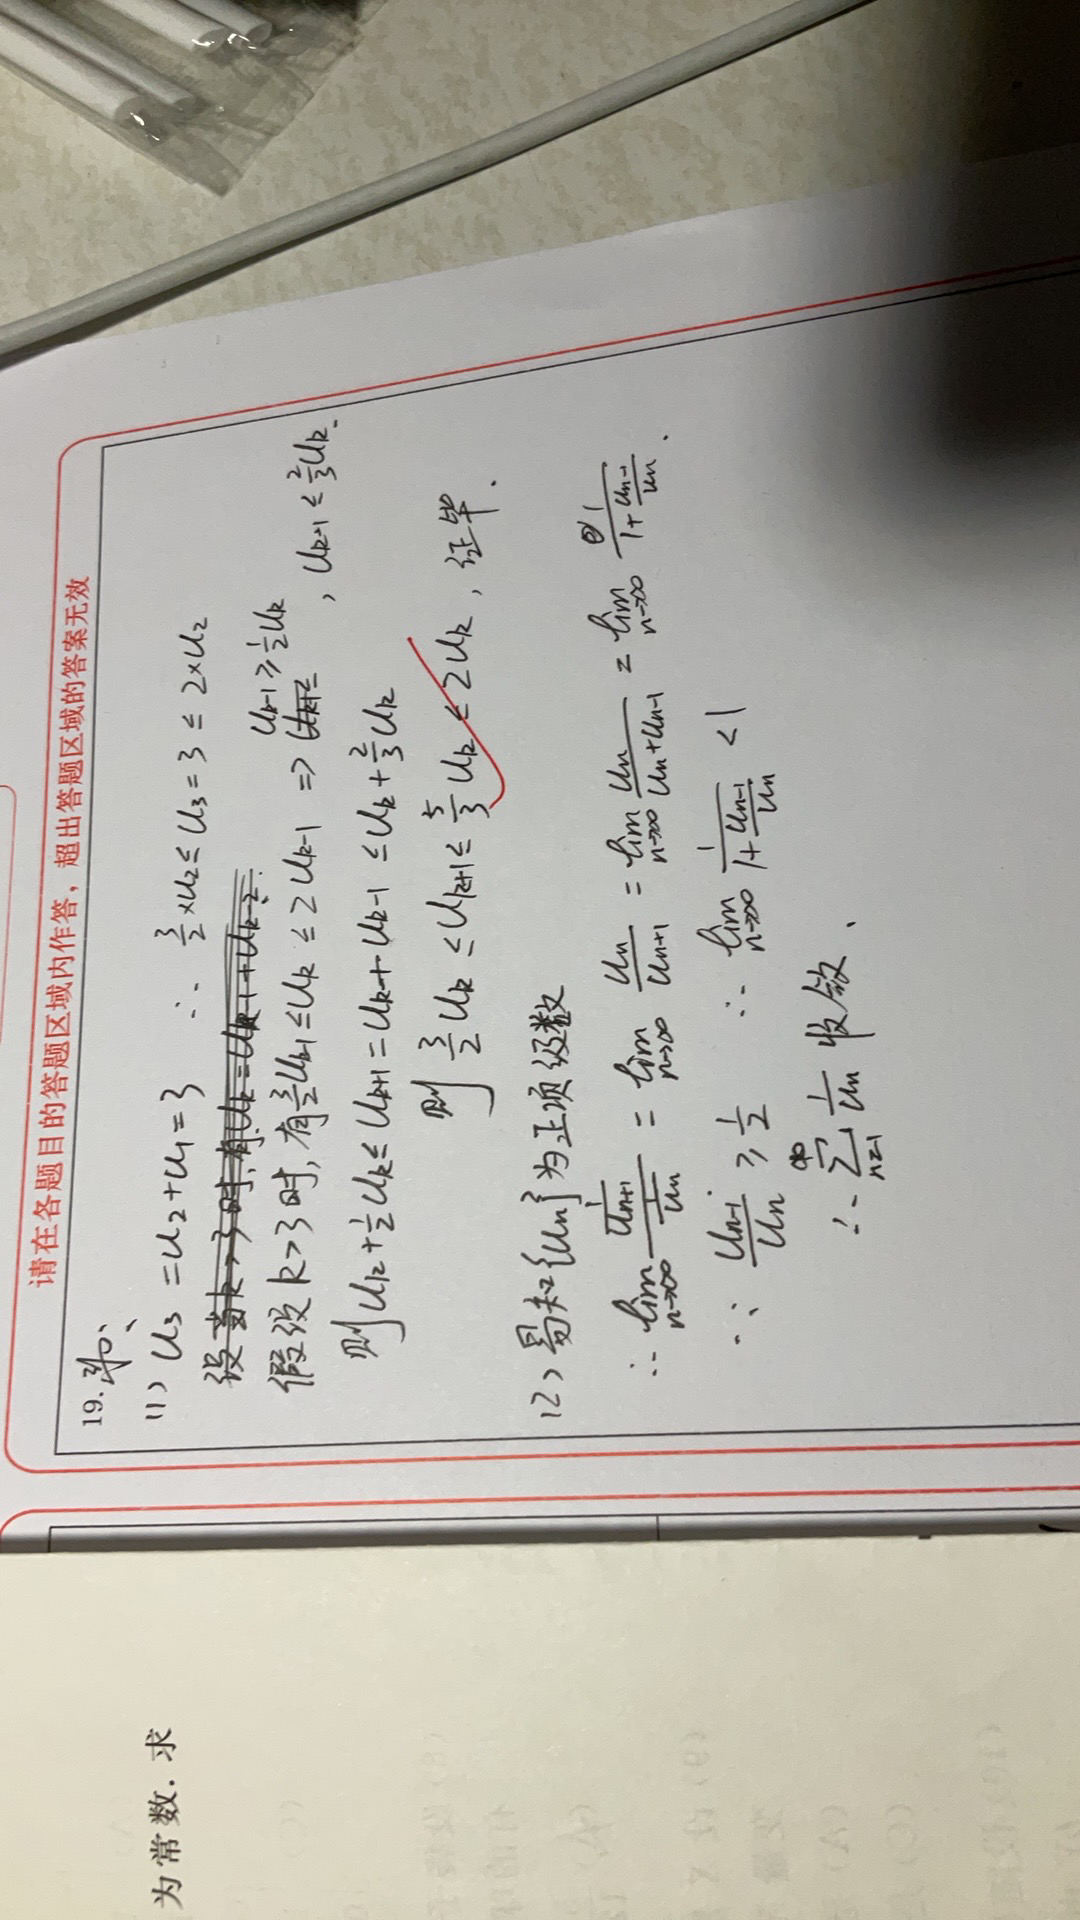 请在各题目的答题区域内作答，超出答题区域的答案无效
19.
(1) u₃ = u₂+u₁ = 3 ∴ 3/2×u₂ ≤ u₃ = 3 ≤ 2×u₂
假设 k>3时, 有 3/2 uₖ₋₁ ≤ uₖ ≤ 2uₖ₋₁ ⇒ uₖ₋₁ ≥ 1/2 uₖ , uₖ₊₁ ≤ 2/3 uₖ.
则 uₖ + 1/2 uₖ ≤ uₖ₊₁ = uₖ + uₖ₋₁ ≤ uₖ + 2/3 uₖ
则 3/2 uₖ ≤ uₖ₊₁ ≤ 5/3 uₖ ≤ 2uₖ , 证毕.
(2) 易知{uₙ}为正项级数
∴ lim n→∞ (1/uₙ₊₁)/(1/uₙ) = lim n→∞ uₙ/uₙ₊₁ = lim n→∞ uₙ/(uₙ+uₙ₋₁) = lim n→∞ 1/(1+uₙ₋₁/uₙ).
∵ uₙ₋₁/uₙ ≥ 1/2 ∴ lim n→∞ 1/(1+uₙ₋₁/uₙ) < 1
∴ ∑ n=1 ∞ 1/uₙ 收敛.
为常数. 求